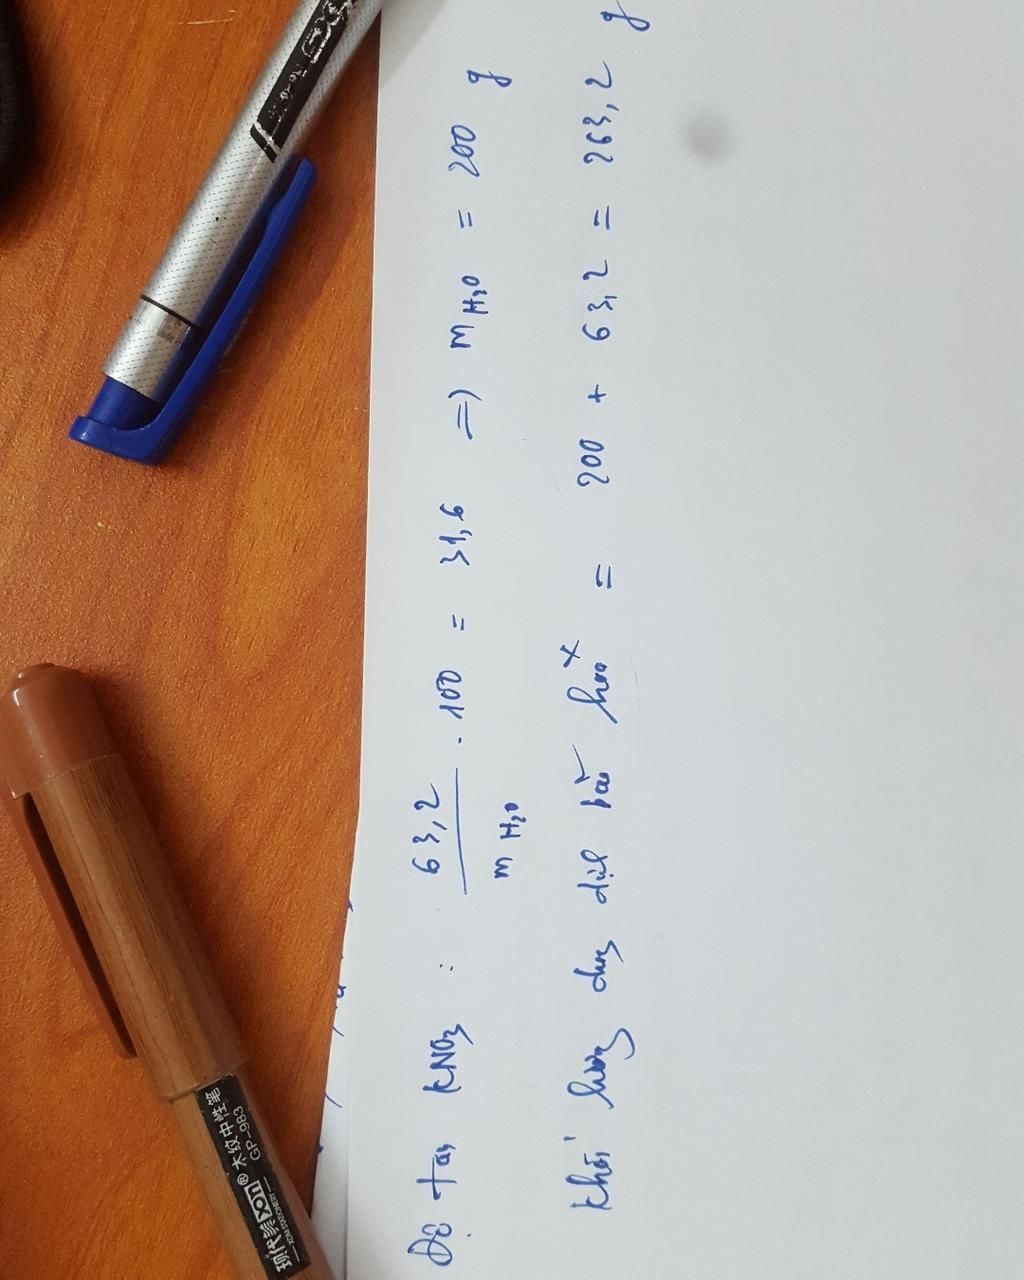 Độ tan KNO3 : 63,2 / mH2O . 100 = 31,6 => mH2O = 200 g
Khối lượng dung dịch bão hoà = 200 + 63,2 = 263,2 g
现代美 xon® 木纹中性笔
XON STATIONERY GP-983